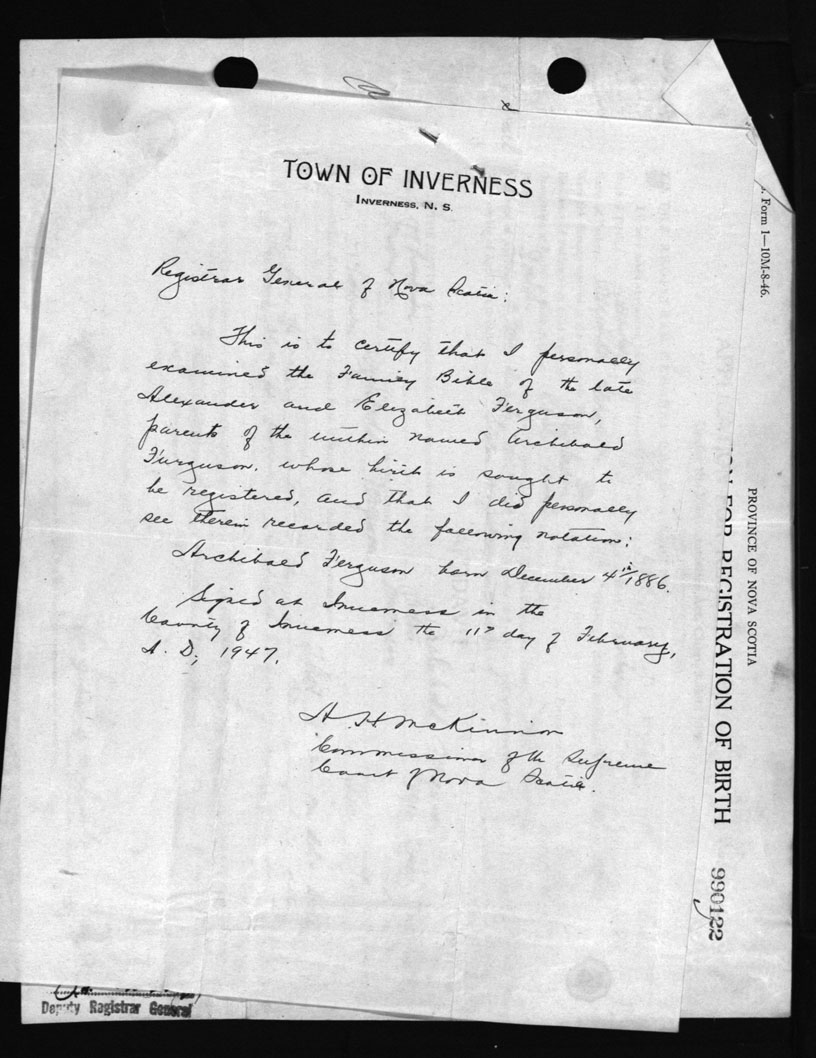 TOWN OF INVERNESS
INVERNESS, N. S.
Registrar General of Nova Scotia:
This is to certify that I personally
examined the Family Bible of the late
Alexander and Elizabeth Ferguson,
parents of the within named Archibald
Furguson, whose birth is sought to
be registered, and that I did personally
see therein recorded the following notation:
Archibald Ferguson born December 4th 1886.
Signed at Inverness in the
County of Inverness the 11th day of February,
A. D., 1947.
A. H. McKinnon
Commissioner of the Supreme
Court of Nova Scotia.
Form 1—10M-8-46.
PROVINCE OF NOVA SCOTIA
FOR REGISTRATION OF BIRTH
990122
Deputy Registrar General